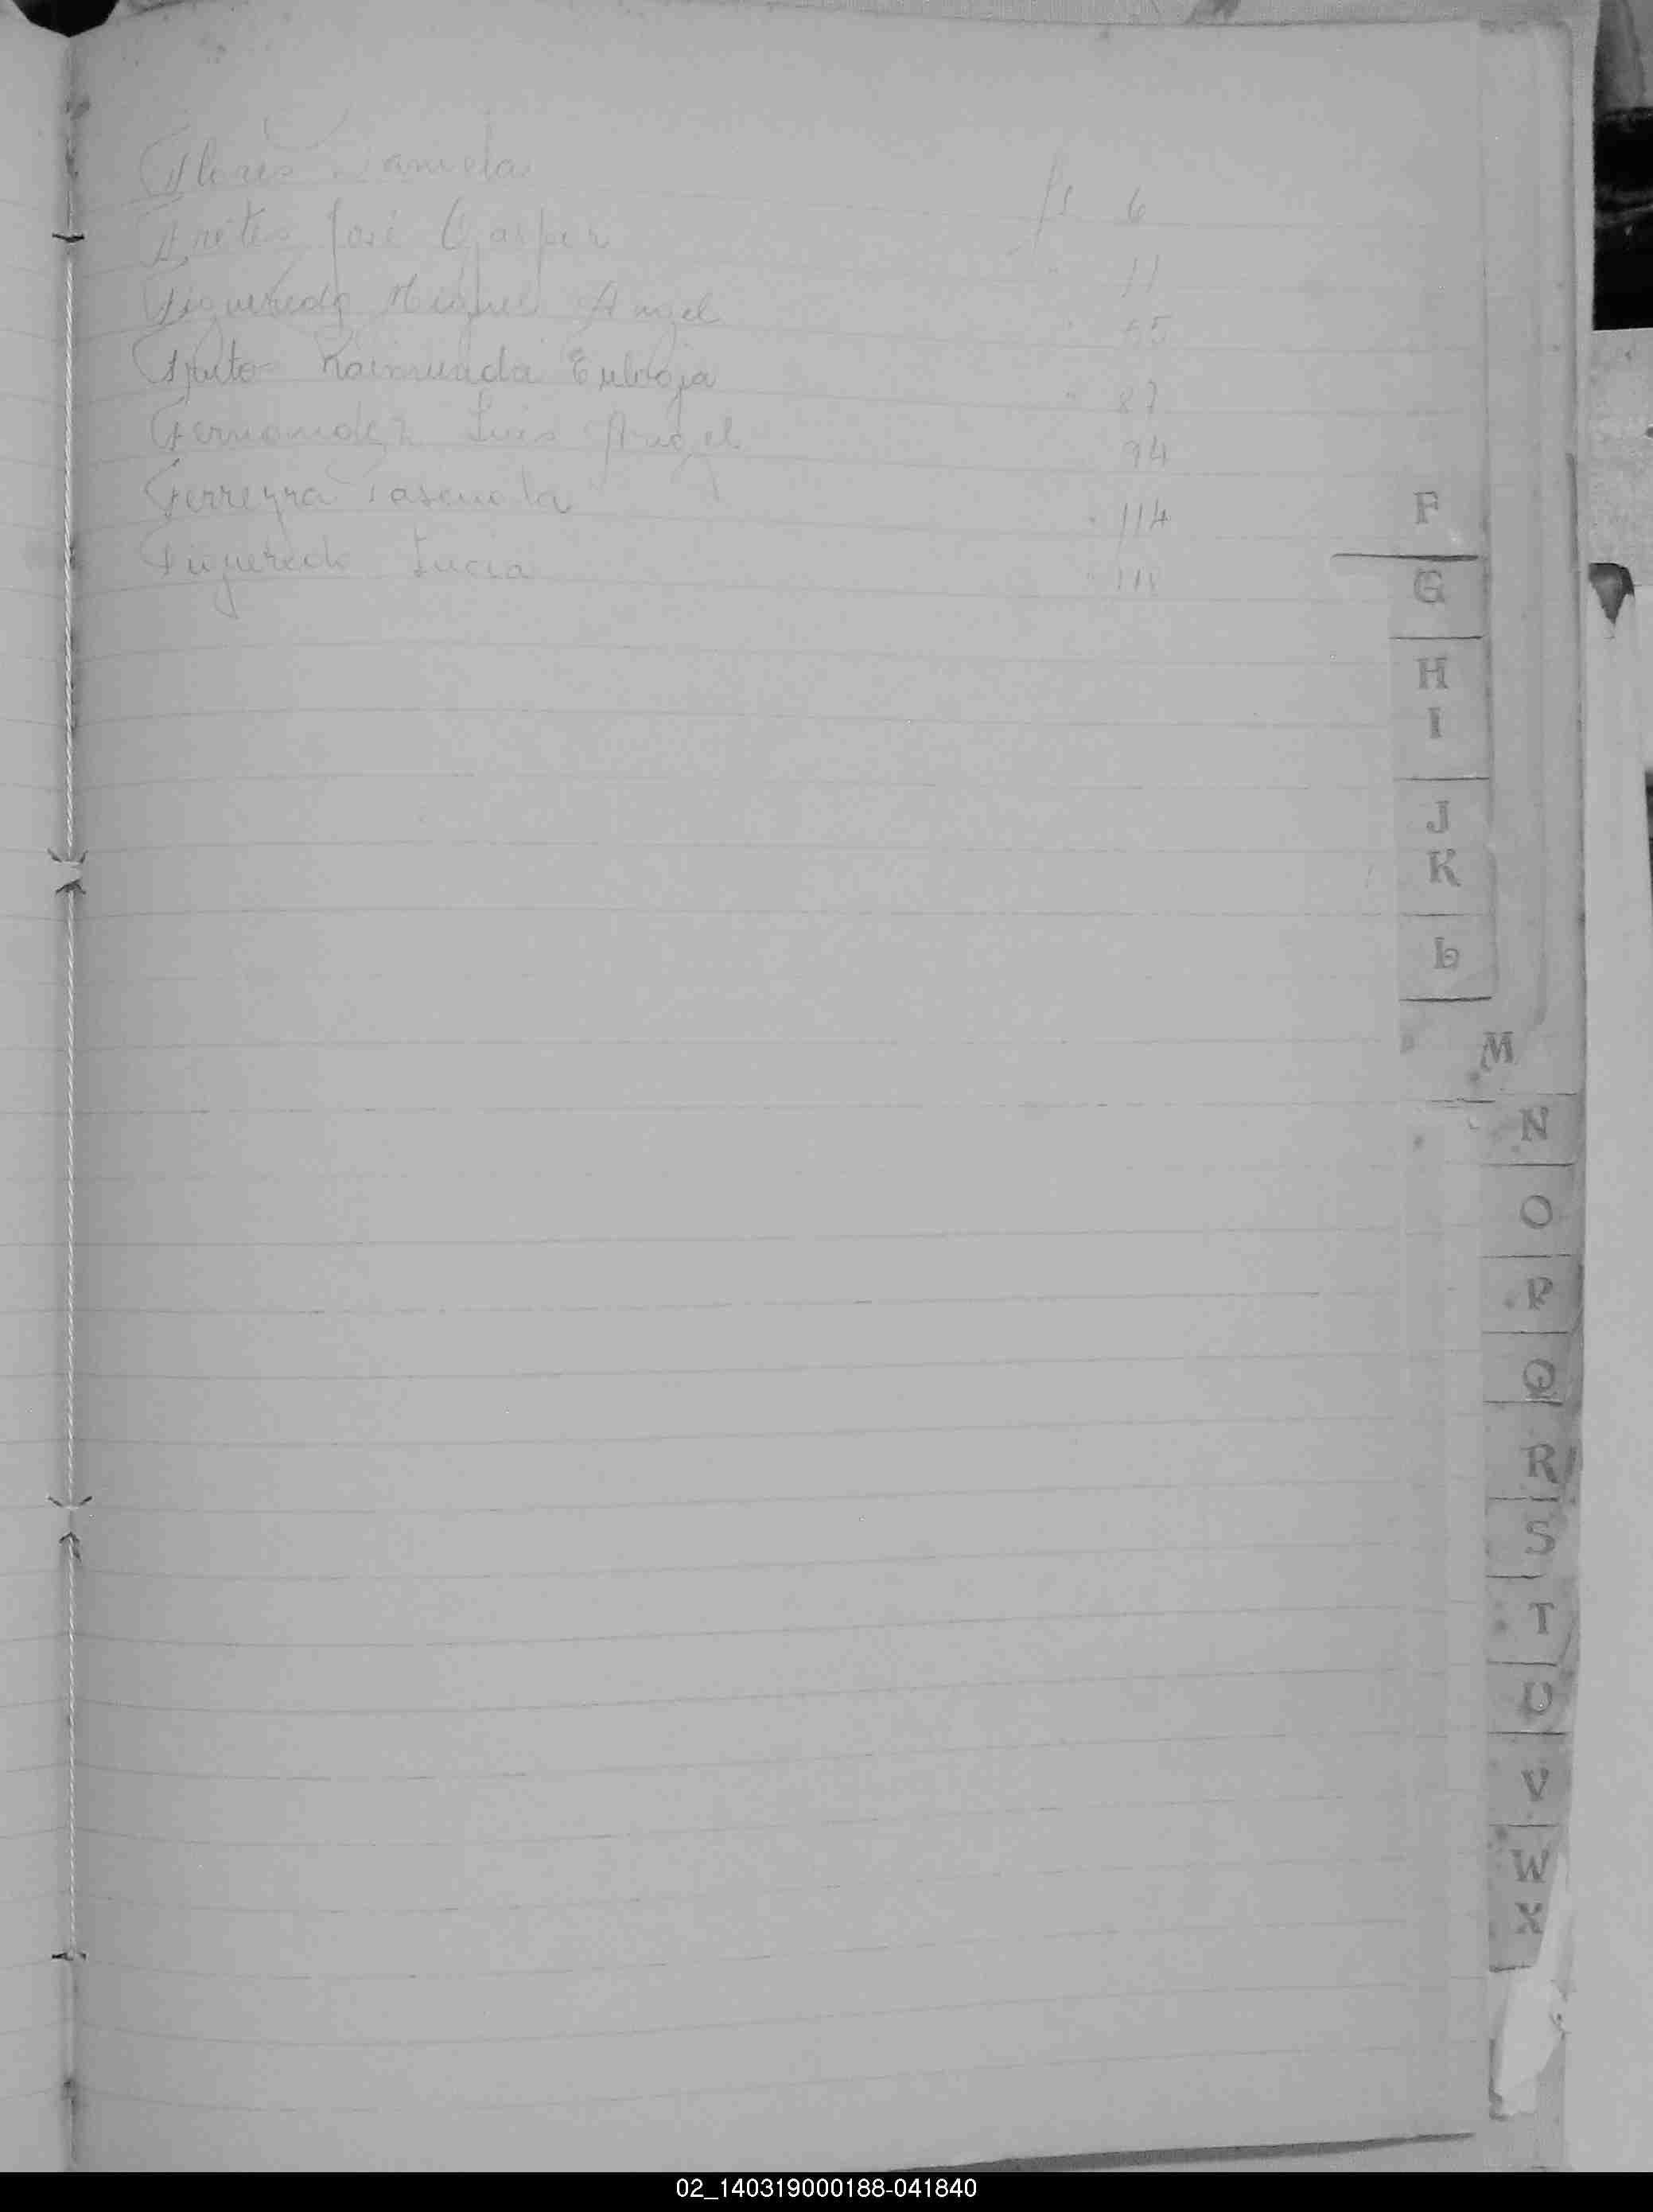 Flores
fs 6
José Gaspar
" 11
Figueredo Miguel Angel
" 55
Raimunda Eulogia
" 87
Fernandez Luis Angel
94
Ferreyra Pascuala
" 114
Figueredo Lucia
"
F
G
H
I
J
K
L
M
N
O
P
Q
R
S
T
U
V
W
X
02_140319000188-041840